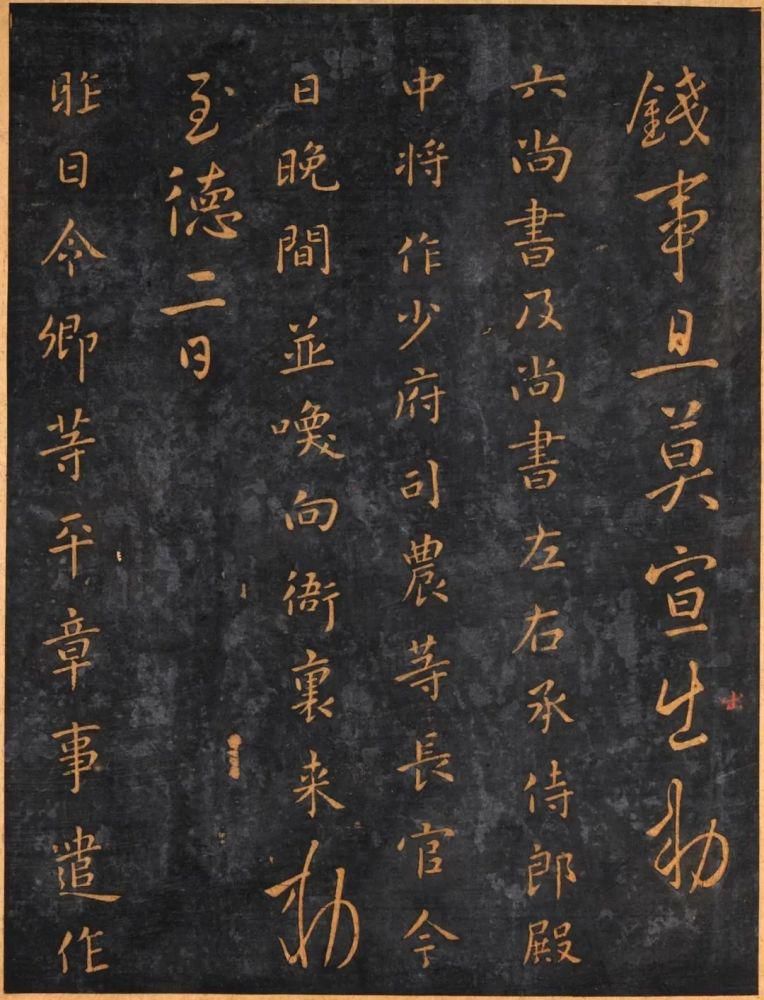 錢事且莫宣生勅
六尚書及尚書左右承侍郎殿
中將作少府司農等長官今
日晚間並喚向衙裏来勅
至德二日
昨日令卿等平章事遣作